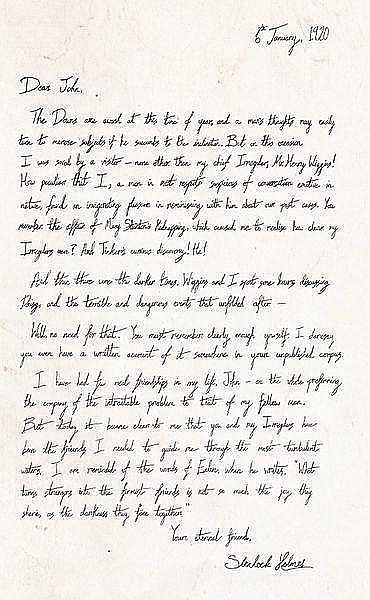 6th January, 1920
Dear John,
The Downs are awful at this time of year, and a man's thoughts may easily
turn to morose subjects if he succumbs to the inclination. But on this occasion
I was saved by a visitor – none other than my chief Irregular, Mr. Henry Wiggins!
How peculiar that I, a man in most respects suspicious of conversation in
nature, found an invigorating pleasure in reminiscing with him about our past cases. You
remember the affair of Mary Stanton's kidnapping, which caused me to realise how clever my
Irregulars were? And Tinker's curious discovery! Ha!
And then there were the darker times. Wiggins and I spent some hours discussing
and the terrible and dangerous events that unfolded after –
Well, no need for that. You must remember clearly enough yourself. I daresay
you even have a written account of it somewhere in your unpublished corpus.
I have had few real friendships in my life, John – on the whole preferring
the company of the intractable problem to that of my fellow man.
But today it became clear to me that you and my Irregulars have
been the friends I needed to guide me through the most turbulent
waters. I am reminded of the words of when he writes, "What
turns strangers into the firmest friends is not so much the joy they
share, as the darkness they face together."
Your eternal friend,
Sherlock Holmes